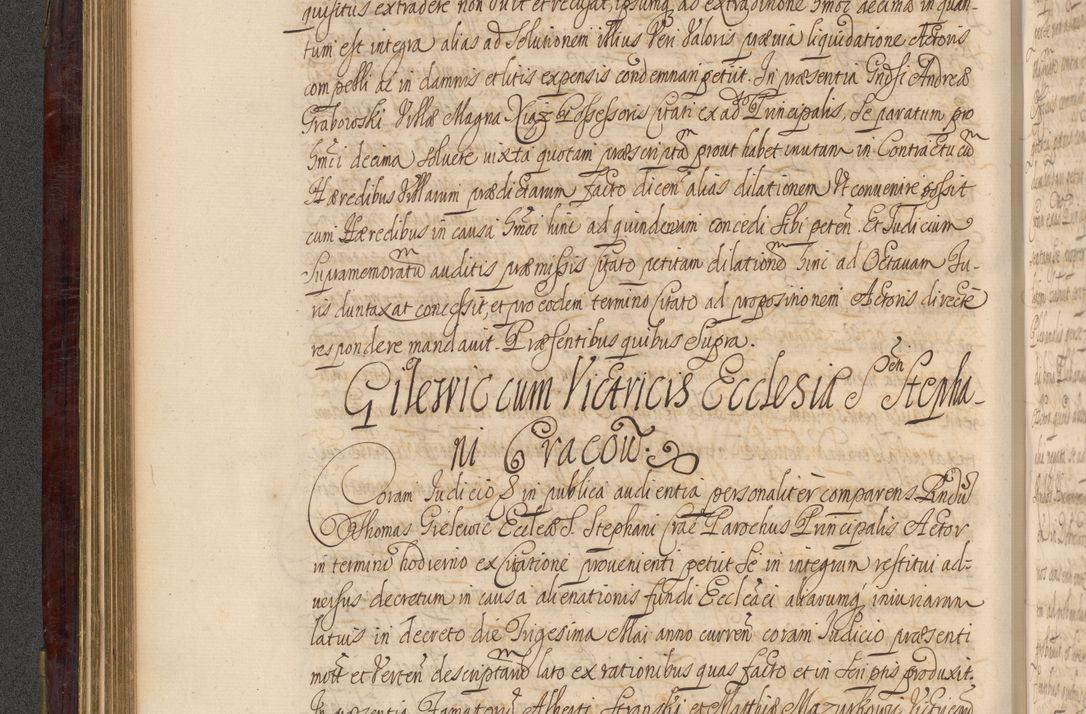 quisitus extradere non vult et recusat, ipsum ad extraditione hmoi decimæ in quan-
tum est integra alias ad solutionem illius veri valoris prævia liquidatione Actoris
compelli ac in damnis et litis expensis condemnari petiit. In præsentia Gndsi Andreæ
Graboroski Villæ Magna Xiąz Possessoris citati ex ad Principalis, se paratum pro
hmci decima solvere iuxta quotam præscripta prout habet mutam in Contractu cu
Hæredibus Villarum prædictarum facto dicen alias dilationem Ut convenire possit
cum Hæredibus in causa hmoi hinc ad quindenam concedi sibi peten. Et Judicium
Supramemoratu auditis præmissis citato petitam dilatione hinc ad Octavam Ju-
ris duntaxat concessit, et pro eodem termino citato ad propositionem Actoris directè
respondere mandavit. Præsentibus quibus supra.
Gilewic cum Victricis Ecclesiæ S. Stepha-
ni Cracou.
Coram Judicio & in publica audientia personalitèr comparens Rndus
Thomas Gielewic Ecclæ S. Stephani Crac Parochus Principalis Actor
in termino hodierno ex Citatione provenienti petiit se in integrum restitui ad-
versus decretum in causa alienationis fundi Eccleāci aliarumq iniuriarum
latuis in decreto die Trigesima Mai anno curren coram Judicio præsenti
mott et Verten descriptarū lato ex rationibus quas facto et in scriptis produxit.
In præsentia Famatorū Alberti Stranski et Matthiæ Mazurkowic